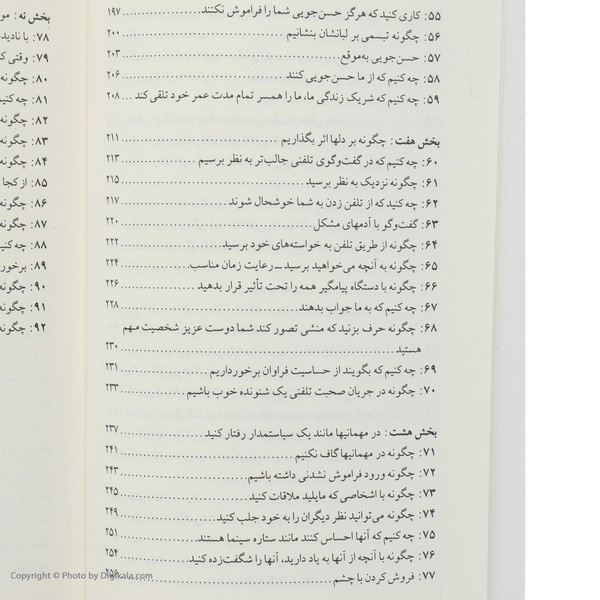 ۵۵: کاری کنید که هرگز حسن‌جویی شما را فراموش نکنند ۱۹۷
۵۶: چگونه تبسمی بر لبانشان بنشانیم ۲۰۰
۵۷: حسن‌جویی به‌موقع ۲۰۳
۵۸: چه کنیم که از ما حسن‌جویی کنند ۲۰۶
۵۹: چه کنیم که شریک زندگی ما، ما را همسر تمام مدت عمر خود تلقی کند ۲۰۸
بخش هفت: چگونه بر دلها اثر بگذاریم ۲۱۱
۶۰: چه کنیم که در گفت‌وگوی تلفنی جالب‌تر به نظر برسیم ۲۱۳
۶۱: چگونه نزدیک به نظر برسید ۲۱۵
۶۲: چه کنید که از تلفن زدن به شما خوشحال شوند ۲۱۷
۶۳: گفت‌وگو با آدمهای مشکل ۲۲۰
۶۴: چگونه از طریق تلفن به خواسته‌های خود برسید ۲۲۲
۶۵: چگونه به آنچه می‌خواهید برسید ــ رعایت زمان مناسب ۲۲۴
۶۶: چگونه با دستگاه پیامگیر همه را تحت تأثیر قرار بدهید ۲۲۶
۶۷: چه کنیم که به ما جواب بدهند ۲۲۸
۶۸: چگونه حرف بزنید که منشی تصور کند شما دوست عزیز شخصیت مهم
هستید ۲۳۰
۶۹: چه کنیم که بگویند از حساسیت فراوان برخورداریم ۲۳۱
۷۰: چگونه در جریان صحبت تلفنی یک شنونده خوب باشیم ۲۳۳
بخش هشت: در مهمانیها مانند یک سیاستمدار رفتار کنید ۲۳۷
۷۱: چگونه در مهمانیها گاف نکنیم ۲۴۱
۷۲: چگونه ورود فراموش نشدنی داشته باشیم ۲۴۳
۷۳: چگونه با اشخاصی که مایلید ملاقات کنید ۲۴۵
۷۴: چگونه می‌توانید نظر دیگران را به خود جلب کنید ۲۴۹
۷۵: چه کنیم که آنها احساس کنند مانند ستاره سینما هستند ۲۵۱
۷۶: چگونه با آنچه از آنها به یاد دارید، آنها را شگفت‌زده کنید ۲۵۴
۷۷: فروش کردن با چشم ۲۵۶
بخش نه:
۷۸: با
۷۹: وقتی
۸۰: چگونه
۸۱: چه کنیم
۸۲: چگونه
۸۳: چگونه
۸۴: چگونه
۸۵: از کجا
۸۶: چگونه
۸۷: چگونه
۸۸: چه
۸۹:
۹۰: چگونه
۹۱: چگونه
۹۲: چگونه
Copyright © Photo by Digikala.com